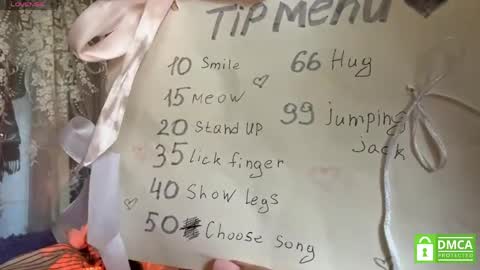 LOVENSE
TIP Menu
10 Smile
15 Meow
20 Stand UP
35 lick finger
40 Show legs
50 Choose song
66 Hug
99 jumping
jack
DMCA
PROTECTED